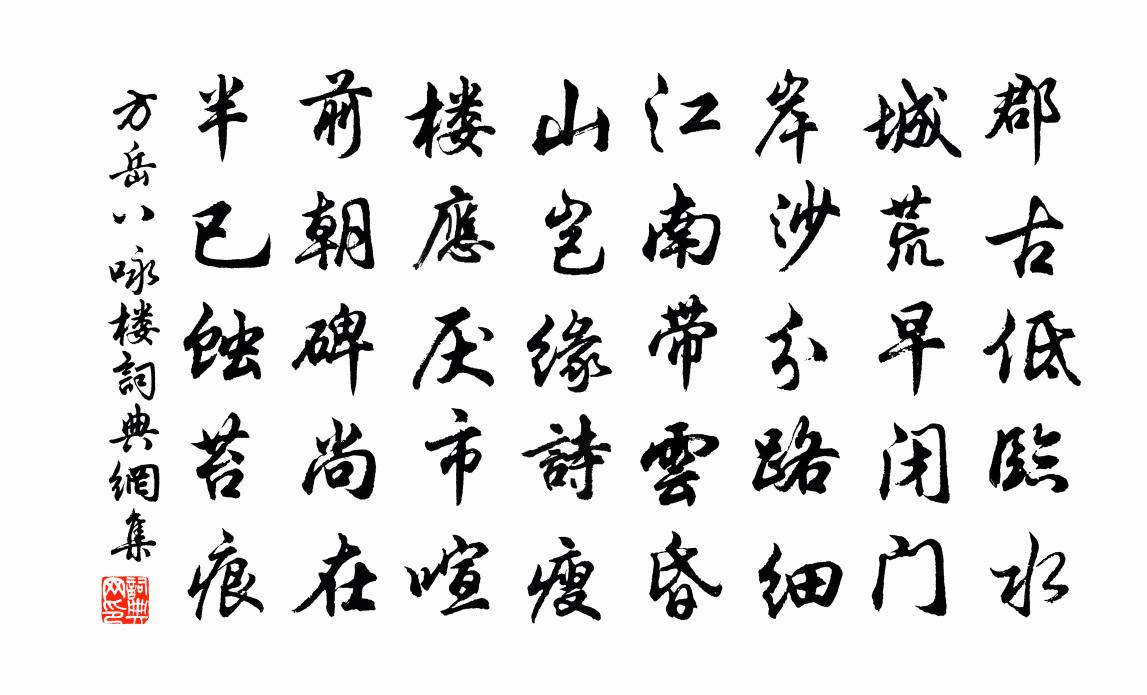 郡古低臨水
城荒早闭门
岸沙分路细
江南带雲昏
山岂緣詩瘦
楼應厌市喧
前朝碑尚在
半已蝕苔痕
方岳八咏楼詞典網集
詞典網印